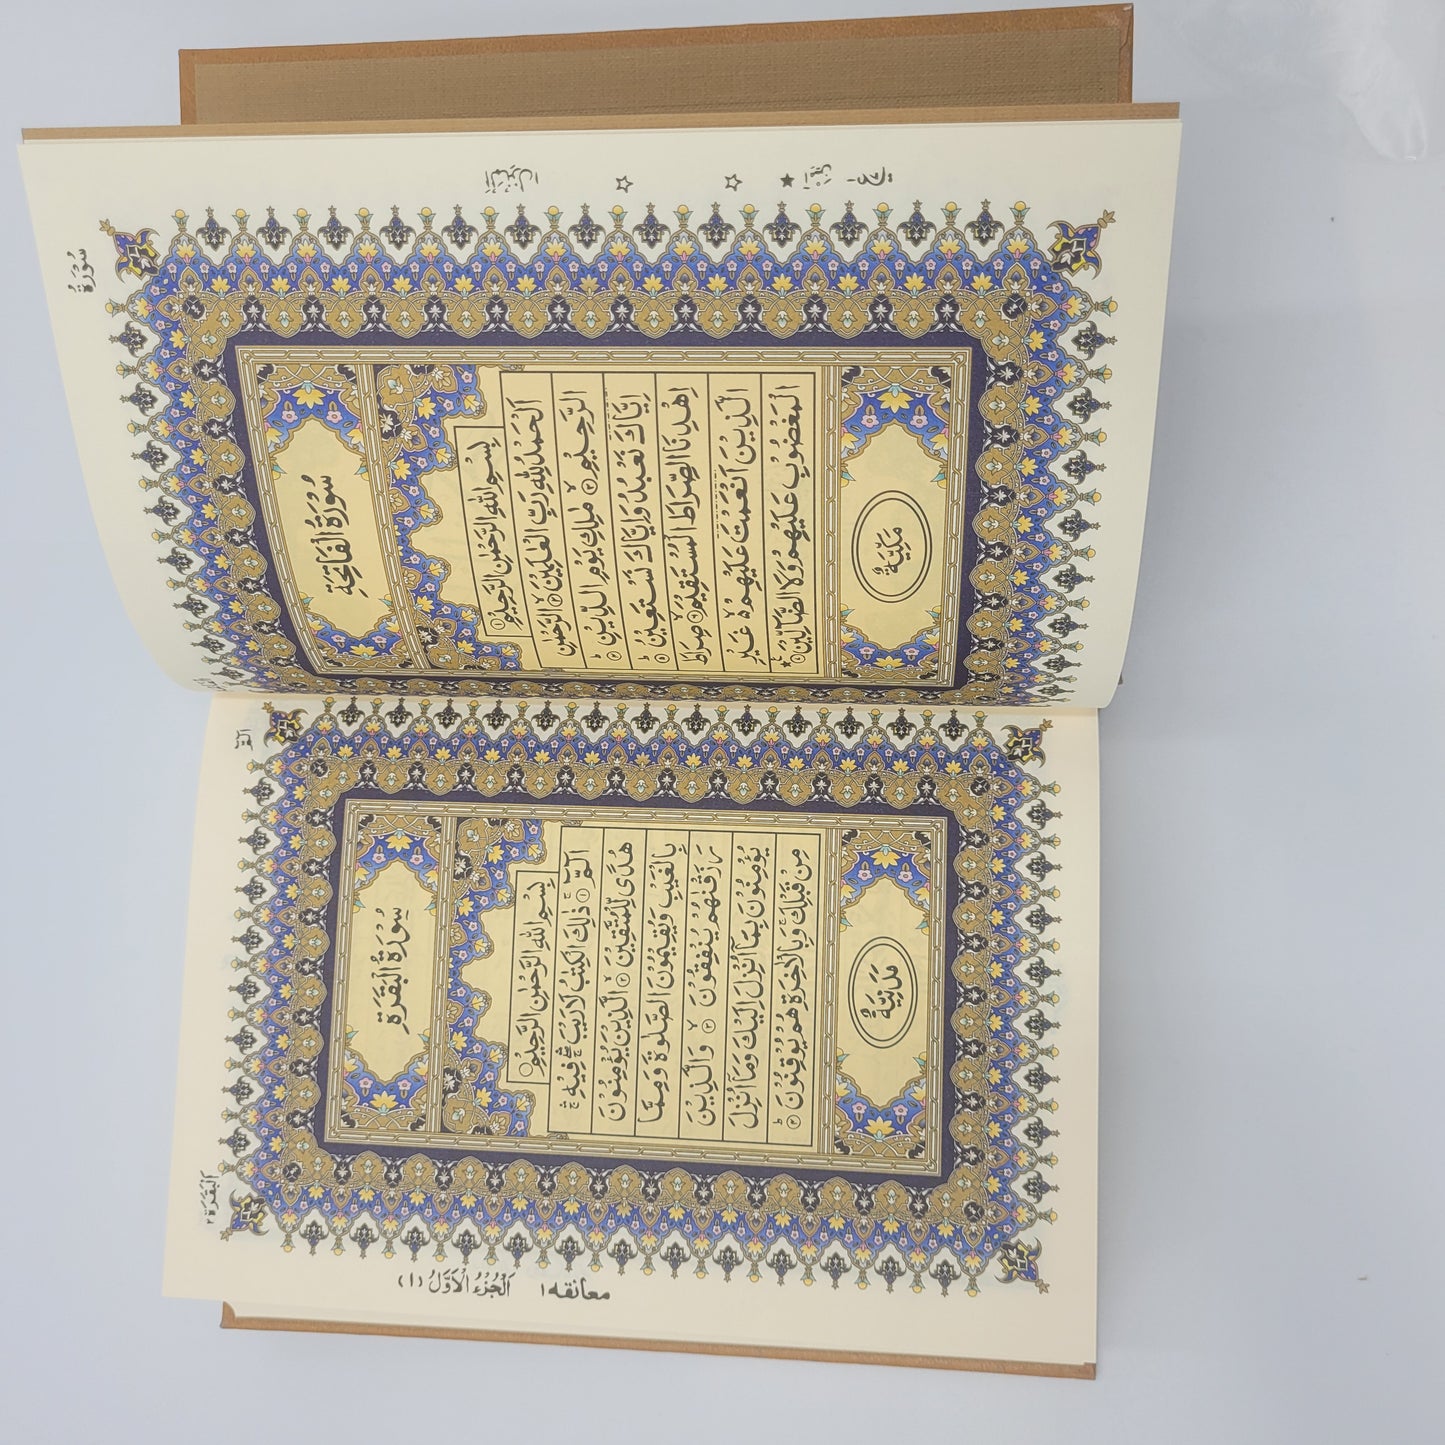 سُوْرَةُ
سُوْرَةُ الْفَاتِحَةِ
بِسْمِ اللهِ الرَّحْمٰنِ الرَّحِيْمِ ①
اَلْحَمْدُ لِلّٰهِ رَبِّ الْعٰلَمِيْنَ ۙ② الرَّحْمٰنِ
الرَّحِيْمِ ۙ③ مٰلِكِ يَوْمِ الدِّيْنِ ؕ④
اِيَّاكَ نَعْبُدُ وَاِيَّاكَ نَسْتَعِيْنُ ؕ⑤
اِهْدِنَا الصِّرَاطَ الْمُسْتَقِيْمَ ۙ⑥ صِرَاطَ
الَّذِيْنَ اَنْعَمْتَ عَلَيْهِمْ ۙ۬ غَيْرِ
الْمَغْضُوْبِ عَلَيْهِمْ وَلَا الضَّآلِّيْنَ ⑦
مَكِّيَّةٌ
الٓمّٓ
اَلْبَقَرَة ٢
سُوْرَةُ الْبَقَرَةِ
بِسْمِ اللهِ الرَّحْمٰنِ الرَّحِيْمِ
الٓمّٓ ۚ① ذٰلِكَ الْكِتٰبُ لَا رَيْبَ ۛۖۚ فِيْهِ ۛۚ
هُدًى لِّلْمُتَّقِيْنَ ۙ② الَّذِيْنَ يُؤْمِنُوْنَ
بِالْغَيْبِ وَيُقِيْمُوْنَ الصَّلٰوةَ وَمِمَّا
رَزَقْنٰهُمْ يُنْفِقُوْنَ ۙ③ وَالَّذِيْنَ
يُؤْمِنُوْنَ بِمَآ اُنْزِلَ اِلَيْكَ وَمَآ اُنْزِلَ
مِنْ قَبْلِكَ ۚ وَبِالْاٰخِرَةِ هُمْ يُوْقِنُوْنَ ؕ④
مَدَنِيَّةٌ
اَلْجُزْءُ الْاَوَّلُ (١)
معانقه ١